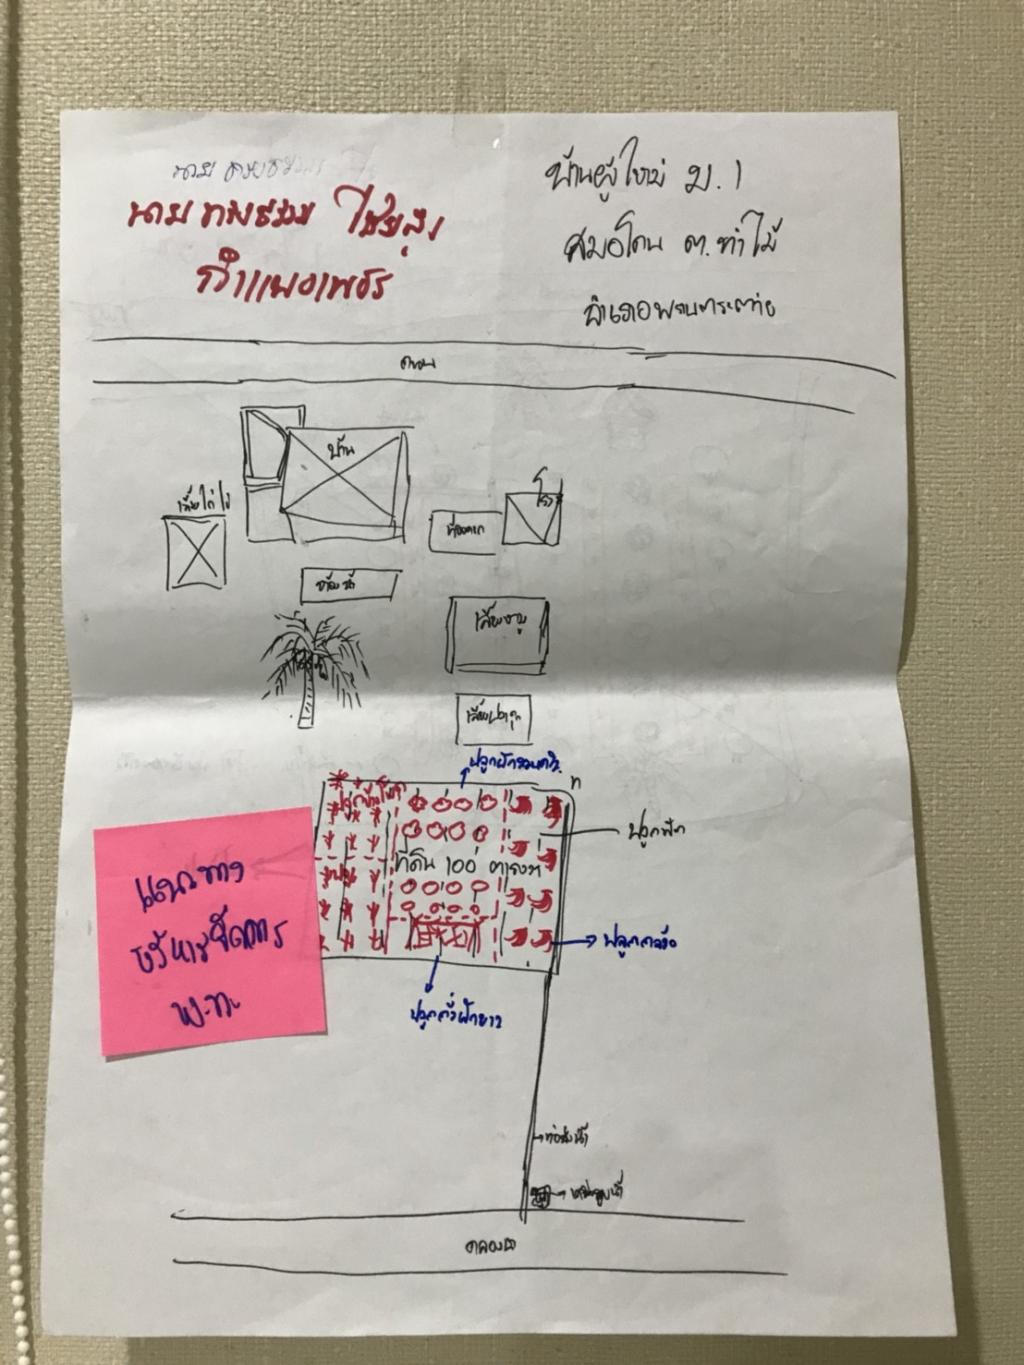 นาย
ไชยสุง
กำแพงเพชร
บ้านผู้ใหญ่ ม.1
สมอโคน ต.ท่าไม้
อำเภอพรานกระต่าย
ถนน
บ้าน
เลี้ยงไก่ไข่
ห้องน้ำ
เลี้ยงหมู
เลี้ยงปลาดุก
ปลูกผักสวนครัว
ปลูกข้าวโพด
ปลูกฟัก
ที่ดิน 100 ตารางวา
ปลูกกล้วย
ปลูกถั่วฝักยาว
แนวทาง
บริหารจัดการ
พ.ท.
ท่อส่งน้ำ
เครื่องสูบน้ำ
คลอง